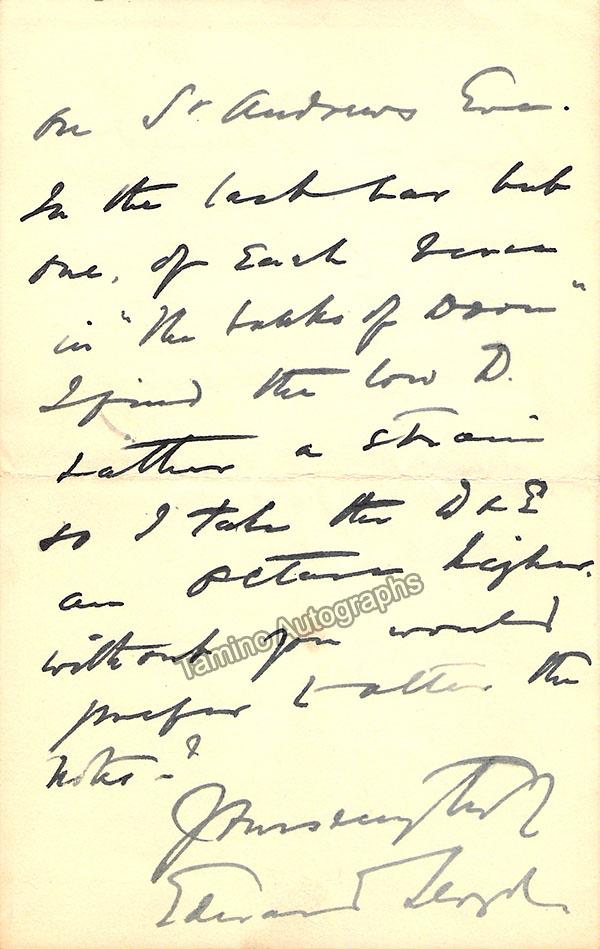 on St Andrews Eve.
In the last bar but
one, of Each Verse
in "The banks of Doon"
I find the low D.
rather a strain
so I take the D & E
an octave higher.
without you would
prefer to alter the
notes-?
Yours very truly
Edward Lloyd.
Tamino Autographs